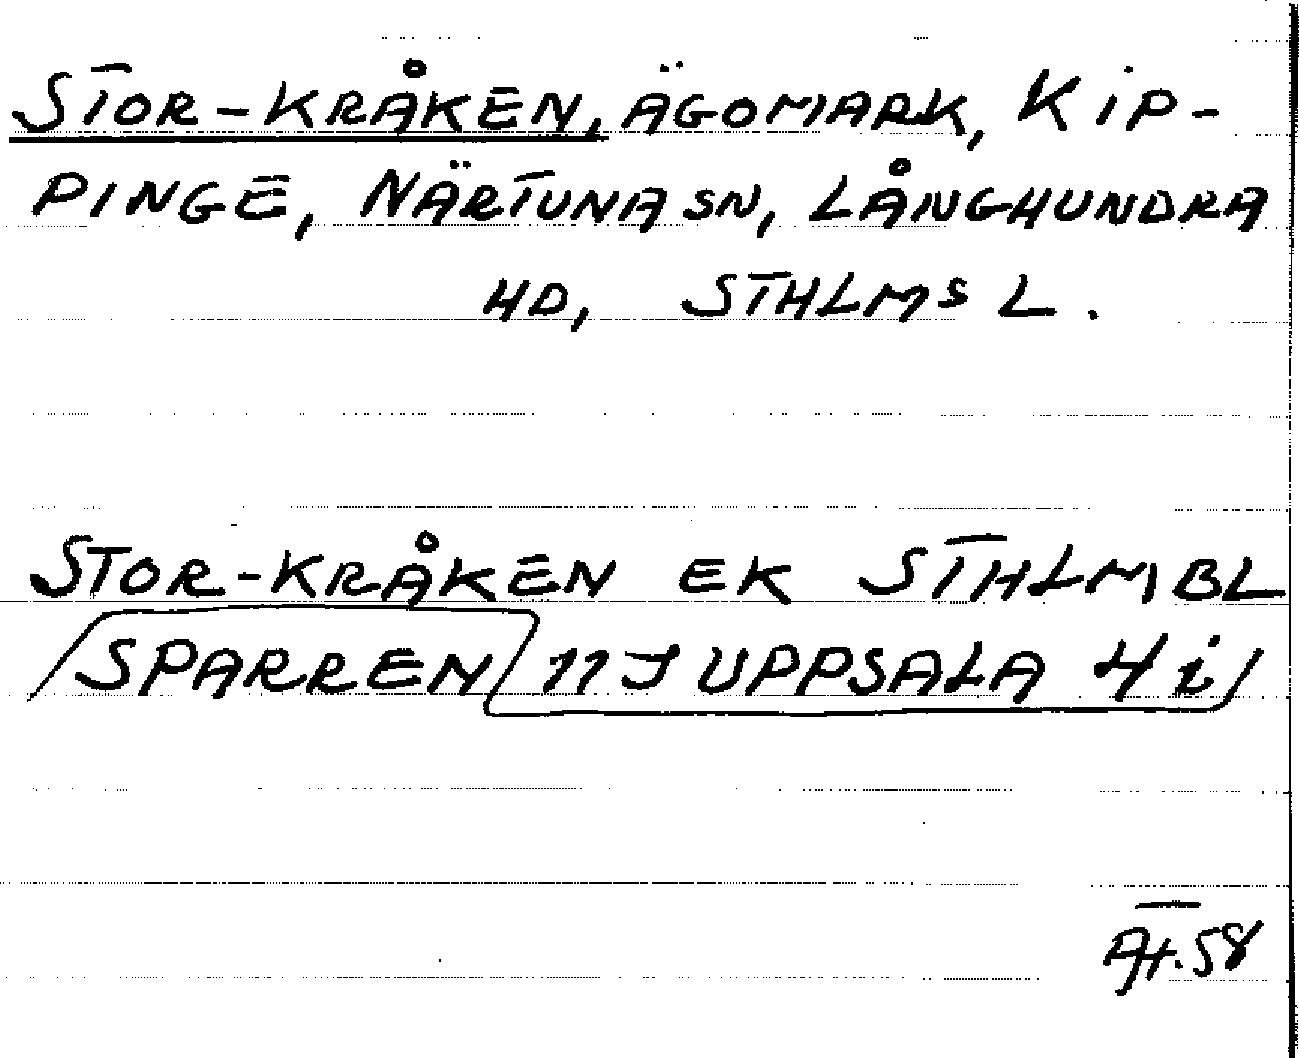 STOR-KRÅKEN, ÄGOMARK, KIP-
PINGE, NÄRTUNA SN, LÅNGHUNDRA
HD, STHLMS L.
STOR-KRÅKEN EK STHLMBL
SPARREN 11J UPPSALA 4i
At. 58